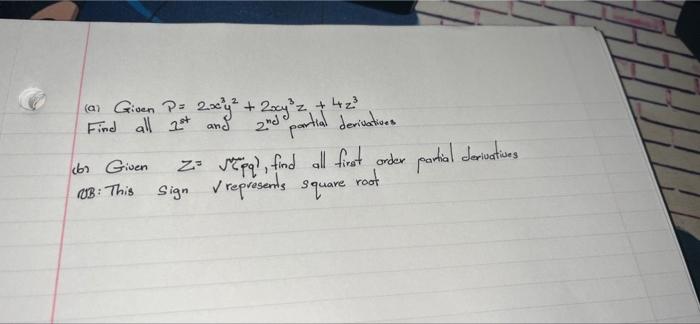 (a) Given P = 2x³y² + 2xy³z + 4z³
Find all 1st and 2nd partial derivatives
(b) Given Z = √(pq), find all first order partial derivatives
NB: This Sign √ represents square root